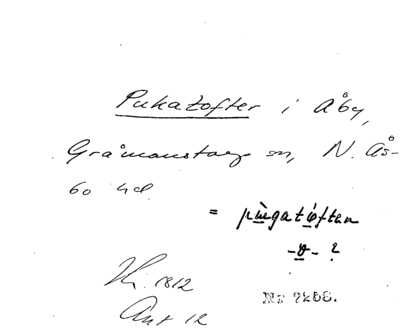 Pukatofter i Åby,
Gråmanstorps sn, N. Ås-
bo hd.
= pùgatòften
-ɵ- ?
Kr. 1812
Ant 12
No 7268.